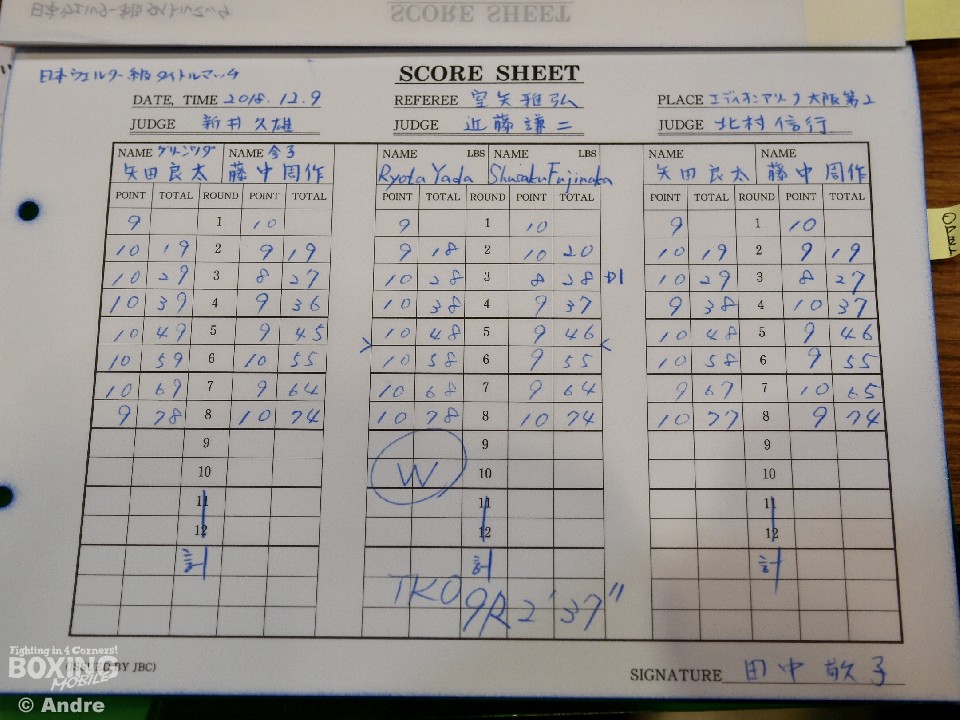 SCORE SHEET
日本ウェルター級タイトルマッチ
SCORE SHEET
DATE, TIME 2018.12.9 REFEREE 宮矢雅弘 PLACE エディオンアリーナ大阪第2
JUDGE 新井久雄 JUDGE 近藤謙二 JUDGE 北村信行
NAME グリーンツダ NAME 金子 NAME LBS NAME LBS NAME NAME
矢田良太 藤中周作 Ryota Yada Shusaku Fujinaka 矢田良太 藤中周作
POINT TOTAL ROUND POINT TOTAL POINT TOTAL ROUND POINT TOTAL POINT TOTAL ROUND POINT TOTAL
9 1 10 9 1 10 9 1 10
10 19 2 9 19 9 18 2 10 20 10 19 2 9 19
10 29 3 8 27 10 28 3 8 28 D1 10 29 3 8 27
10 39 4 9 36 10 38 4 9 37 9 38 4 10 37
10 49 5 9 45 10 48 5 9 46 10 48 5 9 46
10 59 6 10 55 > 10 58 6 9 55 < 10 58 6 9 55
10 69 7 9 64 10 68 7 9 64 9 67 7 10 65
9 78 8 10 74 10 78 8 10 74 10 77 8 9 74
9 9 9
10 W 10 10
11 11 11
12 12 12
計 計 計
TKO 9R 2'37"
(ISSUED BY JBC)
SIGNATURE 田中敬子
Fighting in 4 Corners!
BOXING
MOBILE
© Andre